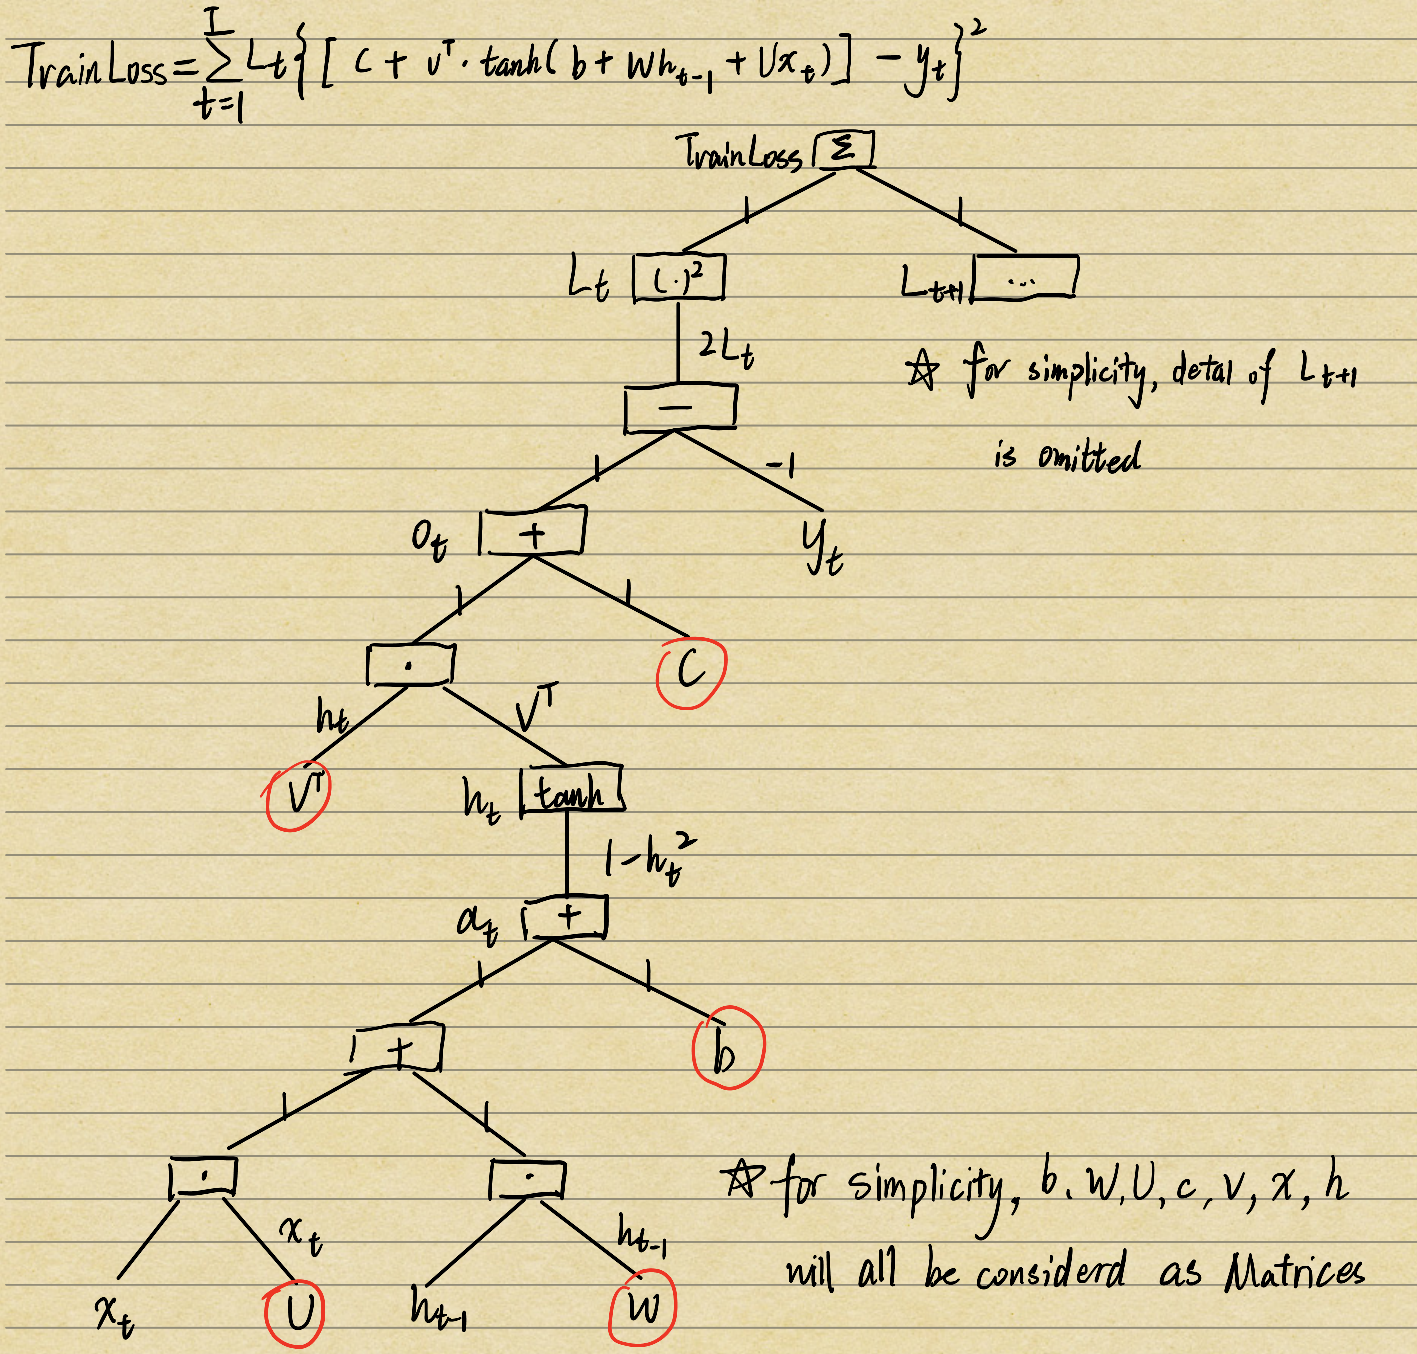 TrainLoss = Σ_{t=1}^{I} L_t { [ C + V^T · tanh( b + Wh_{t-1} + Ux_t ) ] - y_t }^2
TrainLoss Σ
1 1
L_t (·)^2 L_{t+1} ...
2L_t
☆ for simplicity, detal of L_{t+1}
is omitted
-
1 -1
O_t + y_t
1 1
· C
h_t V^T
V^T h_t tanh
1-h_t^2
a_t +
1 1
+ b
1 1
· ·
☆ for simplicity, b. W, U, c, v, x, h
will all be considerd as Matrices
x_t h_{t-1}
x_t U h_{t-1} W